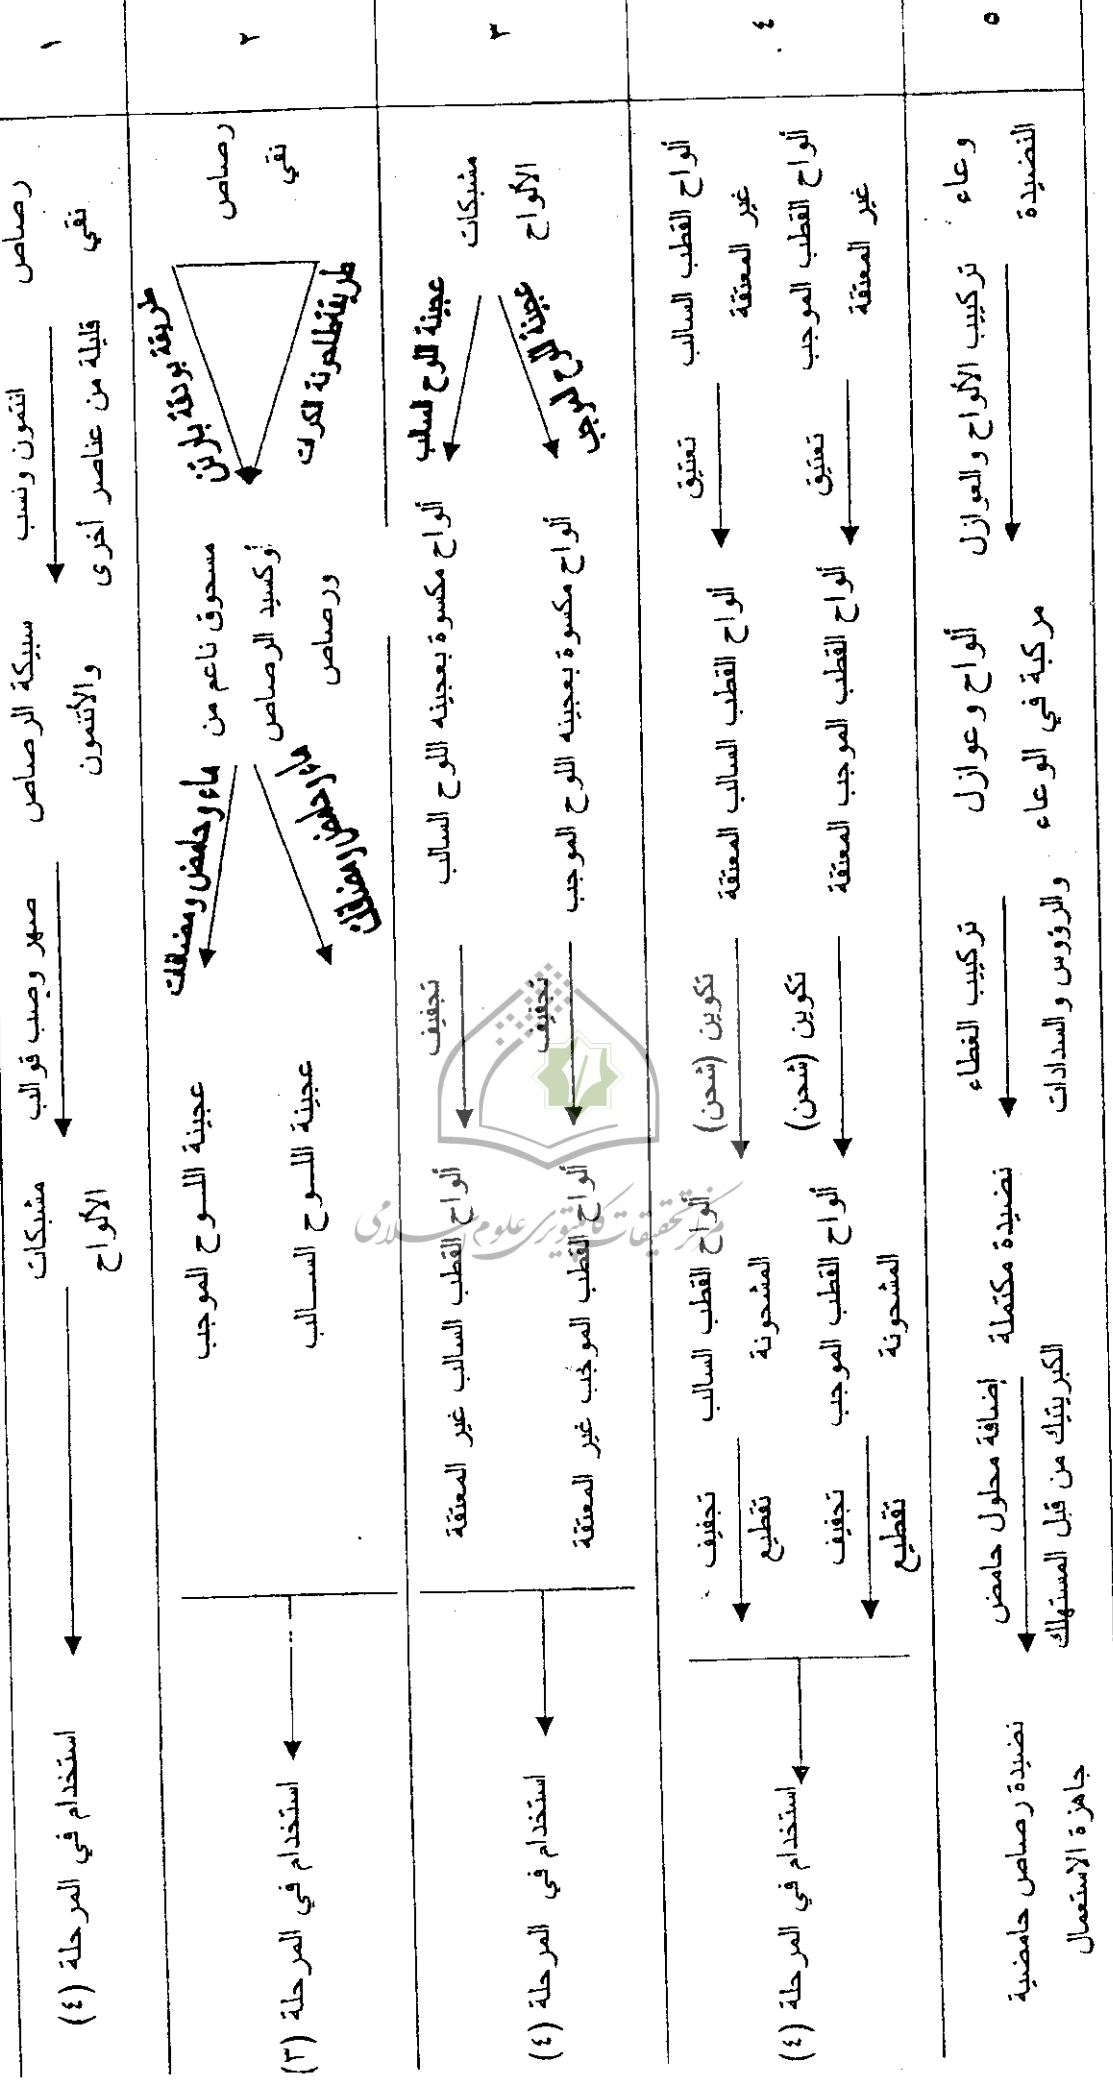 ١
رصاص
نقي
انتمون ونسب
قليلة من عناصر أخرى
سبيكة الرصاص
والأنتمون
صهر وصب قوالب
مشبكات
الألواح
استخدام في المرحلة (٤)
٢
رصاص
نقي
طريقة بوتقة بارتن
طريقة طاحونة الكرات
مسحوق ناعم من
أوكسيد الرصاص
ورصاص
ماء وحامض ومضافات
ماء وحامض ومضافات
عجينة اللوح الموجب
عجينة اللوح السالب
استخدام في المرحلة (٣)
٣
مشبكات
الألواح
عجينة اللوح السالب
عجينة اللوح الموجب
ألواح مكسوة بعجينه اللوح السالب
ألواح مكسوة بعجينه اللوح الموجب
تجفيف
تجفيف
ألواح القطب السالب غير المعتقة
ألواح القطب الموجب غير المعتقة
استخدام في المرحلة (٤)
٤
ألواح القطب السالب
غير المعتقة
ألواح القطب الموجب
غير المعتقة
تعتيق
تعتيق
ألواح القطب السالب المعتقة
ألواح القطب الموجب المعتقة
تكوين (شحن)
تكوين (شحن)
ألواح القطب السالب
المشحونة
ألواح القطب الموجب
المشحونة
تجفيف
تقطيع
تجفيف
تقطيع
استخدام في المرحلة (٤)
٥
وعاء
النضيدة
تركيب الألواح والعوازل
ألواح وعوازل
مركبة في الوعاء
تركيب الغطاء
والرؤوس والسدادات
نضيدة مكتملة
إضافة محلول حامض
الكبريتيك من قبل المستهلك
نضيدة رصاص حامضية
جاهزة الاستعمال
مرکز تحقیقات کامپیوتری علوم اسلامی